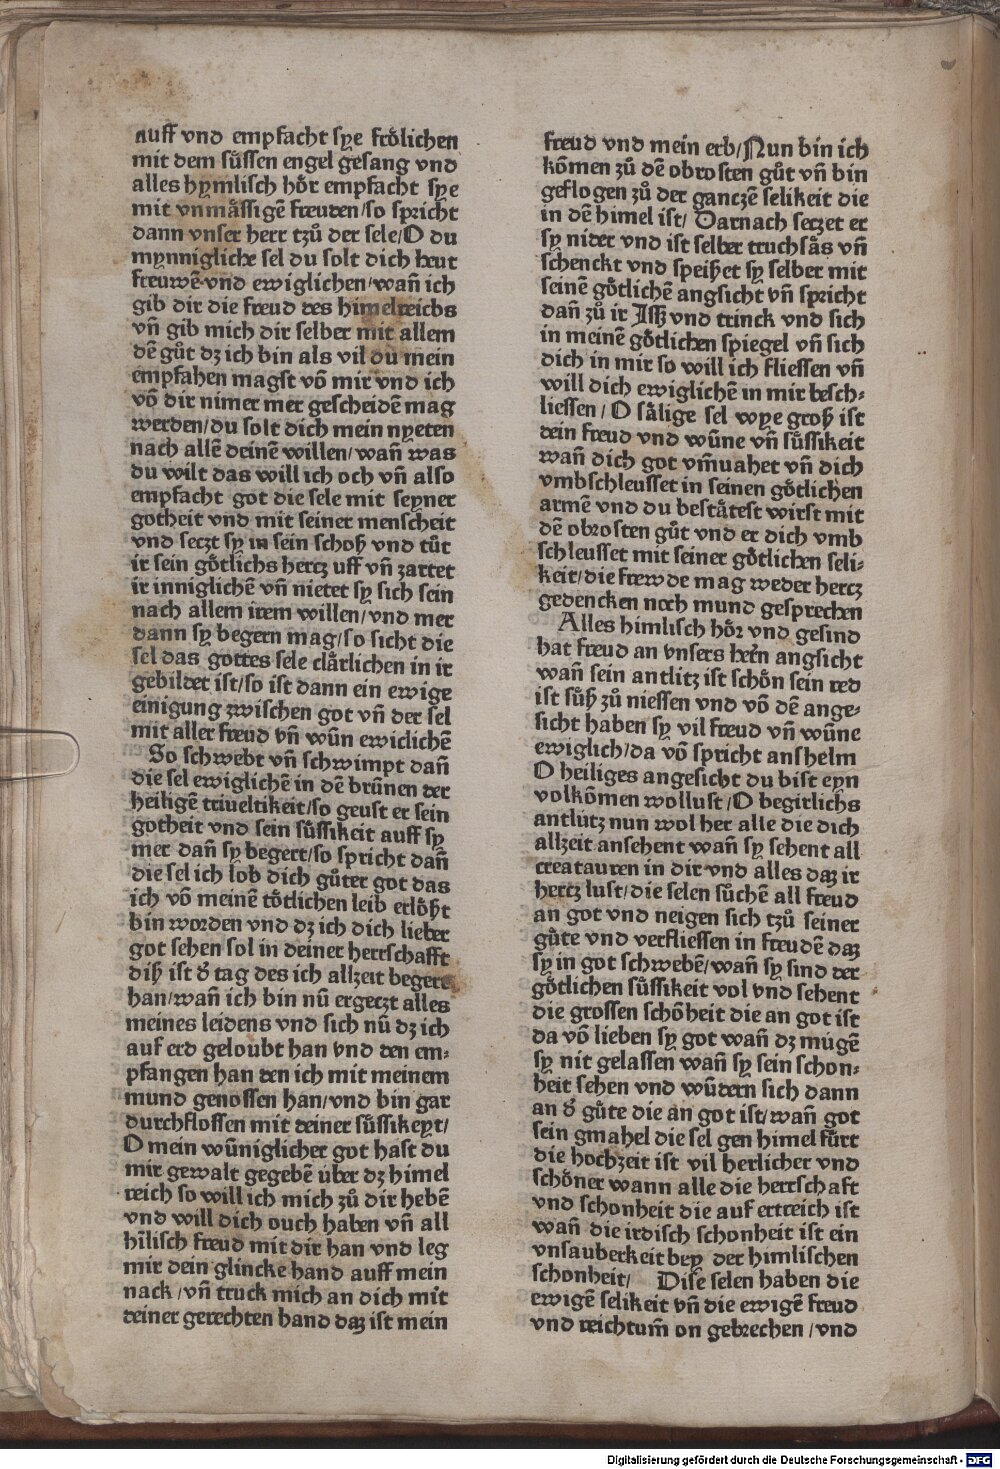 auff vnd empfacht sye frölichen
mit dem süssen engel gesang vnd
alles hymlisch hör empfacht sye
mit vnmåssigē freuden/so spricht
dann vnser herr tzů der sele/O du
mynnigliche sel du solt dich heut
freuwē vnd ewiglichen/wañ ich
gib dir die freud des himelreichs
vñ gib mich dir selber mit allem
dē gůt dz ich bin als vil du mein
empfahen magst võ mir vnd ich
võ dir nimer mer gescheidē mag
werden/du solt dich mein nyeten
nach allē deinē willen/wañ was
du wilt das will ich och vñ also
empfacht got die sele mit seyner
gotheit vnd mit seiner menscheit
vnd seczt sy in sein schoß vnd tůt
ir sein götlichs hercz uff vñ zartet
ir inniglichē vñ nietet sy sich sein
nach allem irem willen/vnd mer
dann sy begern mag/so sicht die
sel das gottes sele clårlichen in ir
gebildet ist/so ist dann ein ewige
einigung zwischen got vñ der sel
mit aller freud vñ wūn ewiclichē
So schwebt vñ schwimpt dañ
die sel ewiglichē in dē brūnen der
heiligē triueltikeit/so geust er sein
gotheit vnd sein süssikeit auff sy
mer dañ sy begert/so spricht dañ
die sel ich lob dich gůter got das
ich võ meinē tötlichen leib erlößt
bin worden vnd dz ich dich lieber
got sehen sol in deiner herrschafft
diß ist d̄ tag des ich allzeit begert
han/wañ ich bin nū ergeczt alles
meines leidens vnd sich nū dz ich
auf erd geloubt han vnd den em⸗
pfangen han den ich mit meinem
mund genossen han/vnd bin gar
durchflossen mit deiner süssikeyt/
O mein wūniglicher got hast du
mir gewalt gegebē über dz himel
reich so will ich mich zů dir hebē
vnd will dich ouch haben vñ all
hīlisch freud mit dir han vnd leg
mir dein glincke hand auff mein
nack/vñ truck mich an dich mit
deiner gerechten hand daz ist mein
freud vnd mein erb/Nun bin ich
kōmen zů dē obrosten gůt vñ bin
geflogen zů der ganczē selikeit die
in dē himel ist/ Darnach seczet er
sy nider vnd ist selber truchsås vñ
schenckt vnd speißet sy selber mit
seinē götlichē angsicht vñ spricht
dañ zů ir Jß vnd trinck vnd sich
in meinē götlichen spiegel vñ sich
dich in mir so will ich fliessen vñ
will dich ewiglichē in mir besch⸗
liessen/O sålige sel wye groß ist
dein freud vnd wūne vñ süssikeit
wañ dich got vm̄uahet vñ dich
vmbschleusset in seinen götlichen
armē vnd du beståtest wirst mit
dē obrosten gůt vnd er dich vmb
schleusset mit seiner götlichen seli⸗
keit/die frewde mag weder hercz
gedencken noch mund gesprechen
Alles himlisch hör vnd gesind
hat freud an vnsers herñ angsicht
wañ sein antlitz ist schön sein red
ist süß zů niessen vnd võ dē ange⸗
sicht haben sy vil freud vñ wūne
ewiglich/da võ spricht anshelm
O heiliges angesicht du bist eyn
volkōmen wollust/O begirlichs
antlütz nun wol her alle die dich
allzeit ansehent wañ sy sehent all
creatauren in dir vnd alles daz ir
hercz lust/die selen sůchē all freud
an got vnd neigen sich tzů seiner
gůte vnd verfliessen in freudē daz
sy in got schwebē/wañ sy sind der
götlichen süssikeit vol vnd sehent
die grossen schönheit die an got ist
da võ lieben sy got wañ dz mügē
sy nit gelassen wañ sy sein schon⸗
heit sehen vnd wūdern sich dann
an d̄ gůte die an got ist/wañ got
sein gmahel die sel gen himel fürt
die hochzeit ist vil herlicher vnd
schöner wann alle die herrschaft
vnd schonheit die auf ertreich ist
wañ die irdisch schonheit ist ein
vnsauberkeit bey der himlischen
schonheit/ Dise selen haben die
ewigē selikeit vñ die ewigē freud
vnd reichtum̄ on gebrechen/vnd
Digitalisierung gefördert durch die Deutsche Forschungsgemeinschaft - DFG